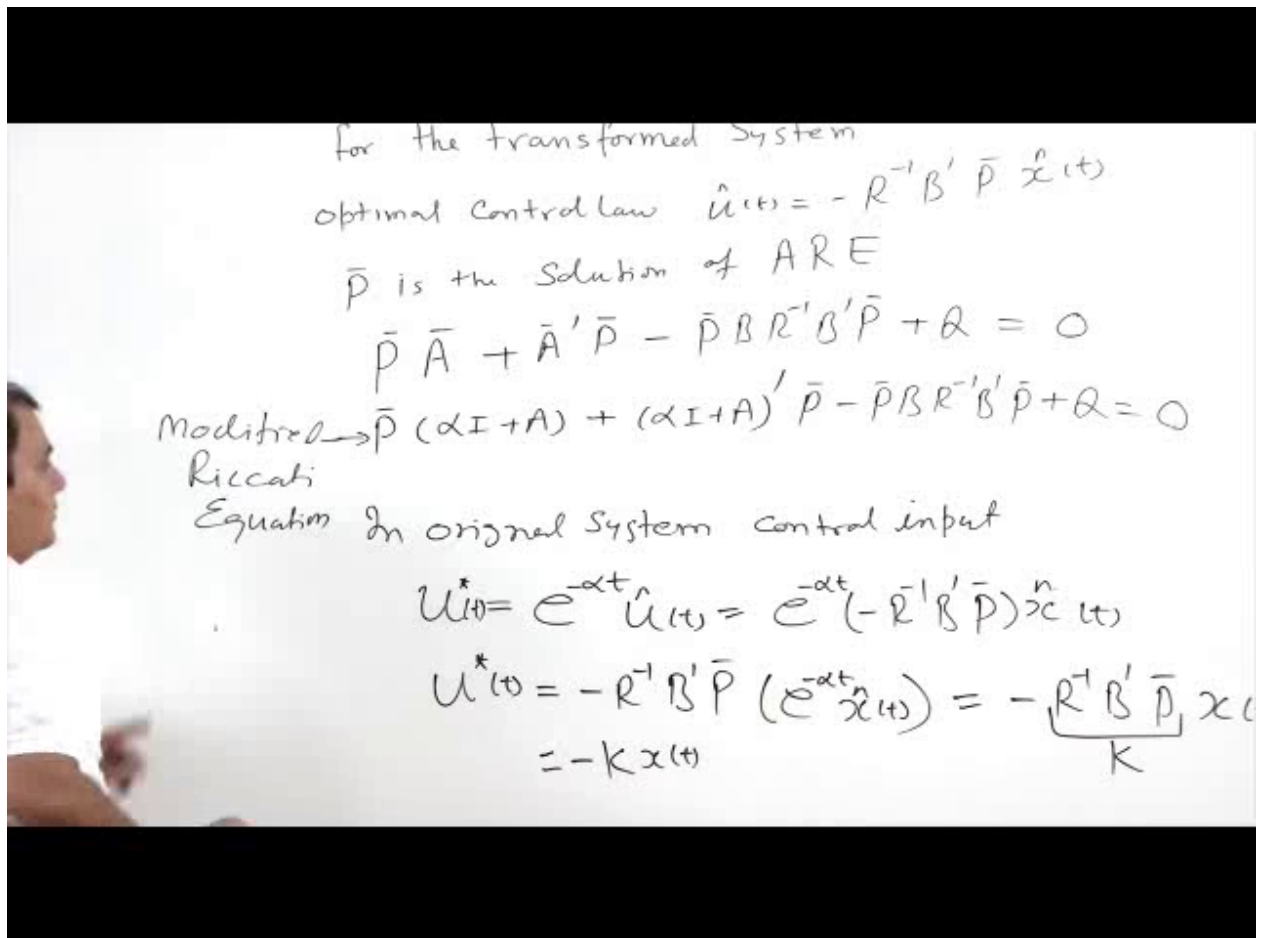 for the transformed System
optimal Control law û(t) = - R⁻¹ B' P̄ x̂(t)
P̄ is the Solution of ARE
P̄ Ā + Ā' P̄ - P̄ B R⁻¹ B' P̄ + Q = 0
Modified → P̄ (αI + A) + (αI + A)' P̄ - P̄ B R⁻¹ B' P̄ + Q = 0
Riccati
Equation
In orignal System control input
U*(t) = e^{-αt} û(t) = e^{-αt} (- R⁻¹ B' P̄) x̂(t)
U*(t) = - R⁻¹ B' P̄ (e^{-αt} x̂(t)) = - R⁻¹ B' P̄ x(
= - K x(t)
K